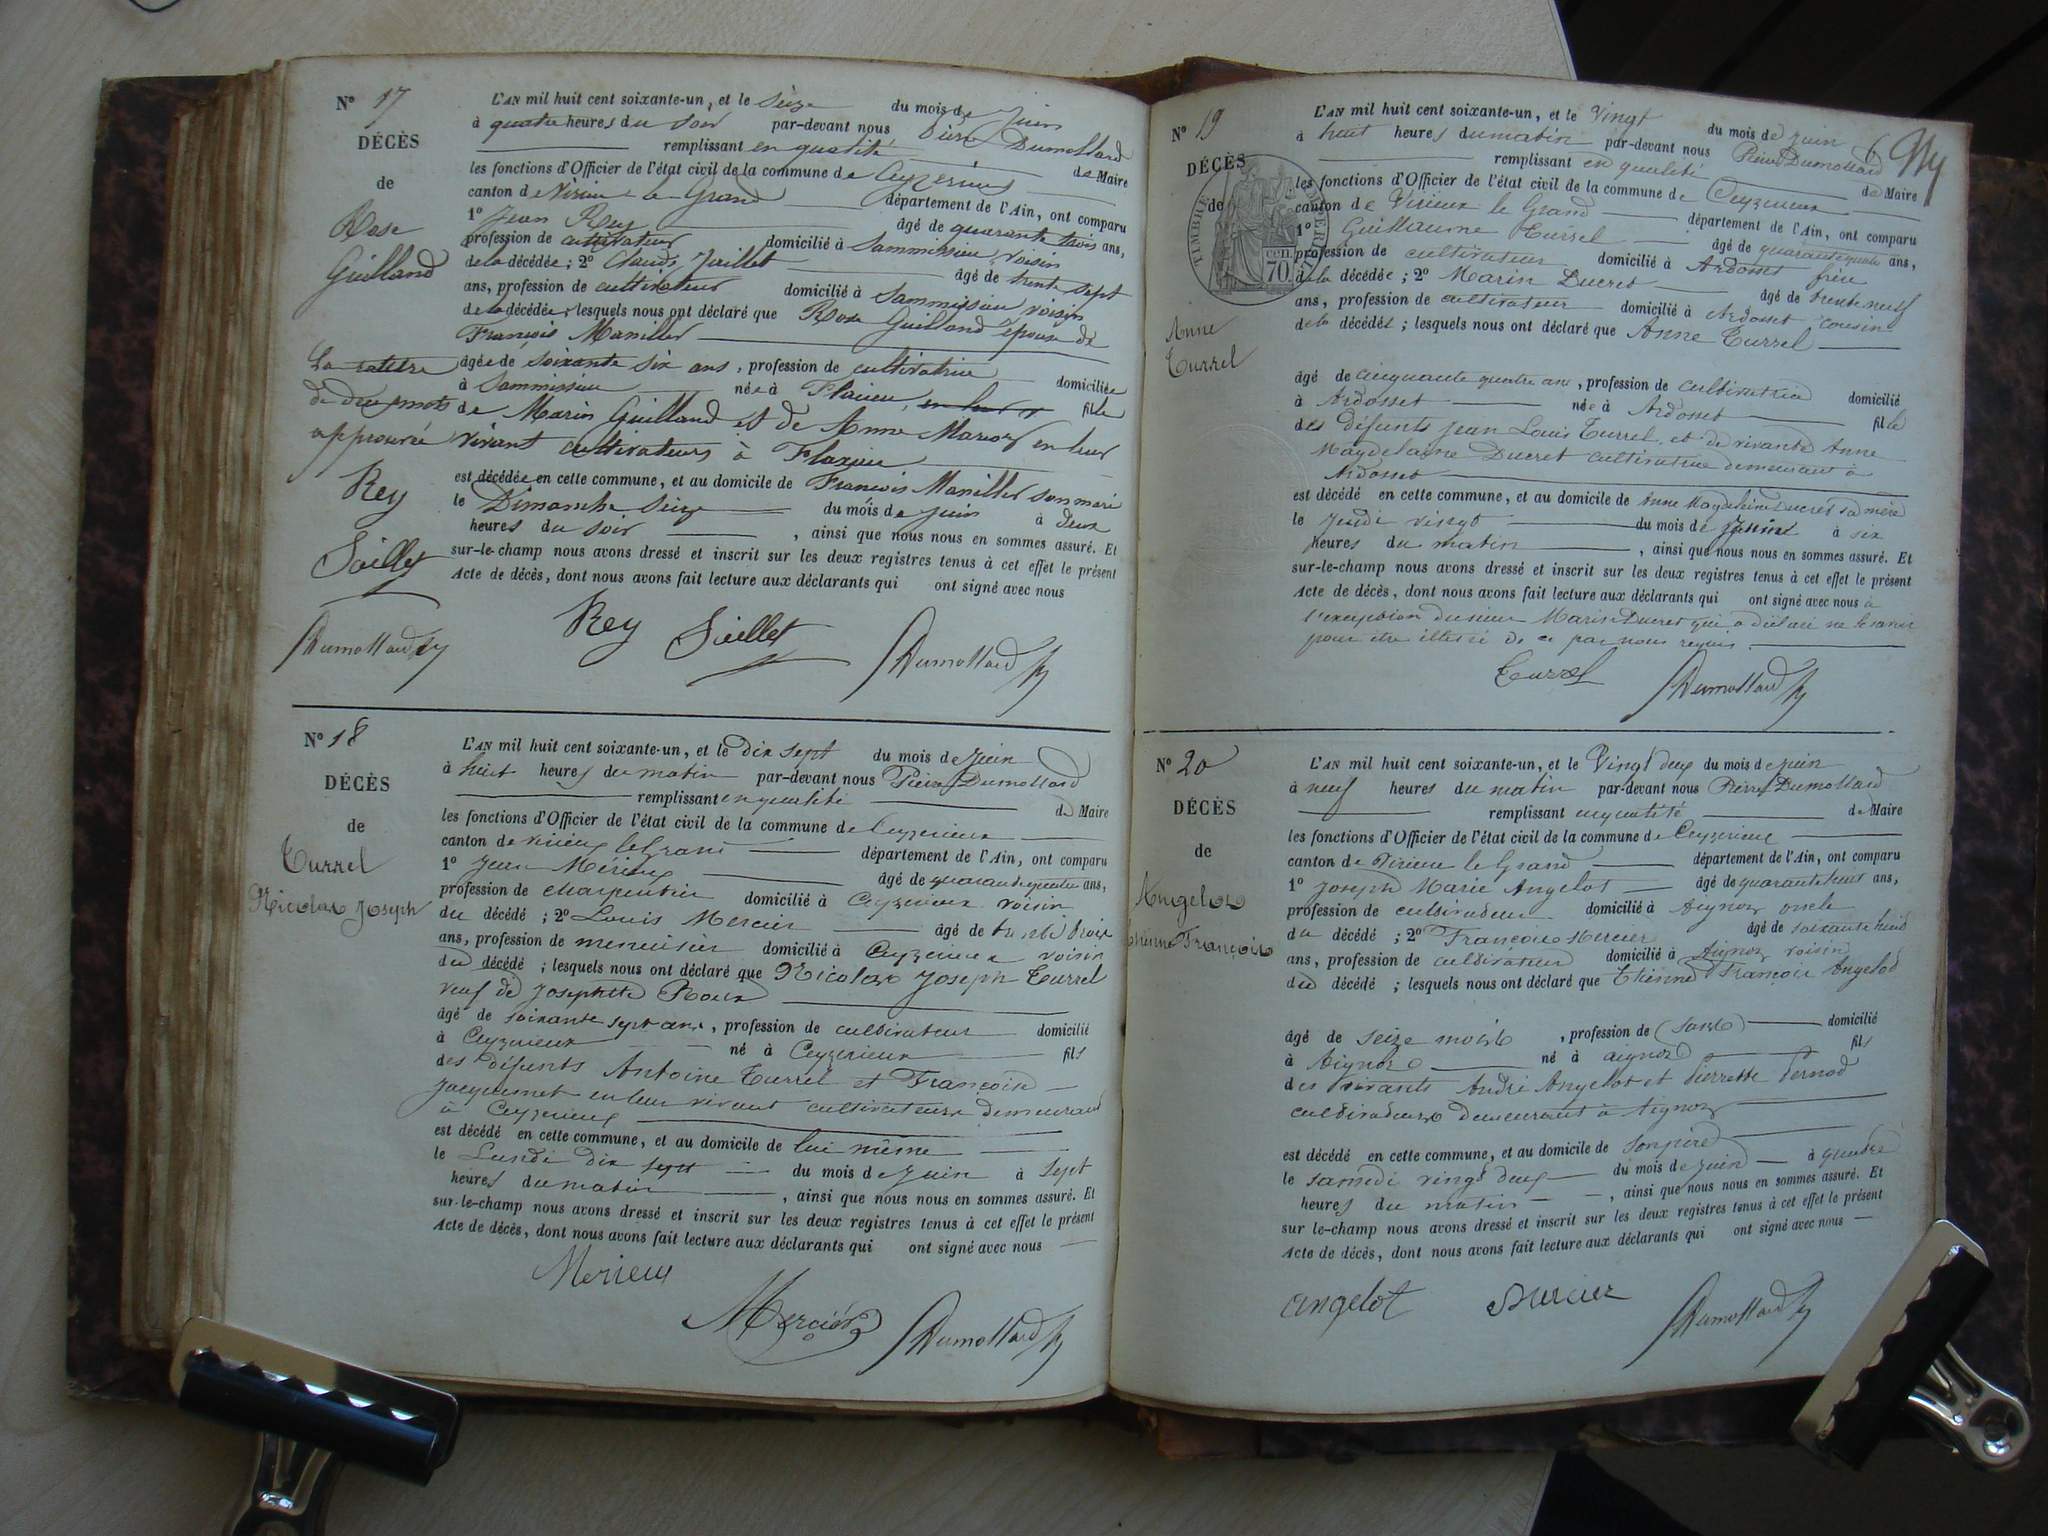 N° 17
DÉCÈS
de
Rose
Guilland
L'AN mil huit cent soixante-un, et le Seize du mois de Juin
à quatre heures du soir par-devant nous Pierre Dumollard
remplissant en qualité de Maire
les fonctions d'Officier de l'état civil de la commune de Ceyzerieux
canton de Virieu le Grand département de l'Ain, ont comparu
1° Jean Rey âgé de quarante trois ans,
profession de cultivateur domicilié à Sammissieu voisin
de la décédée; 2° Claude Juillet âgé de trente sept
ans, profession de cultivateur domicilié à Sammissieu voisin
de la décédée, lesquels nous ont déclaré que Rose Guilland épouse de
François Maniller
âgée de soixante six ans, profession de cultivatrice domiciliée
à Sammissieu née à Flaxieu, en leur fille
de Marin Guilland et de Anne Marion en leur
vivant cultivateurs à Flaxieu
La rature
de deux mots
approuvée
Rey
Juillet
Dumollard
est décédée en cette commune, et au domicile de François Maniller son mari
le Dimanche Seize du mois de Juin à deux
heures du soir, ainsi que nous nous en sommes assuré. Et
sur-le-champ nous avons dressé et inscrit sur les deux registres tenus à cet effet le présent
Acte de décès, dont nous avons fait lecture aux déclarants qui ont signé avec nous
Rey Juillet Dumollard
N° 18
DÉCÈS
de
Turrel
Nicolas Joseph
L'AN mil huit cent soixante-un, et le dix sept du mois de Juin
à huit heures du matin par-devant nous Pierre Dumollard
remplissant en qualité de Maire
les fonctions d'Officier de l'état civil de la commune de Ceyzerieux
canton de virieux le Grand département de l'Ain, ont comparu
1° Jean Mérieux âgé de quarante quatre ans,
profession de charpentier domicilié à Ceyzerieux voisin
du décédé; 2° Louis Mercier âgé de trente trois
ans, profession de menuisier domicilié à Ceyzerieux voisin
du décédé; lesquels nous ont déclaré que Nicolas Joseph Turrel
veuf de Josephte Roux
âgé de soixante sept ans, profession de cultivateur domicilié
à Ceyzerieux né à Ceyzerieux fils
des défunts Antoine Turrel et Françoise
Jacquemet en leur vivant cultivateurs demeurant
à Ceyzerieux
est décédé en cette commune, et au domicile de lui même
le Lundi dix sept du mois de Juin à sept
heures du matin, ainsi que nous nous en sommes assuré. Et
sur-le-champ nous avons dressé et inscrit sur les deux registres tenus à cet effet le présent
Acte de décès, dont nous avons fait lecture aux déclarants qui ont signé avec nous
Merieux
Mercier Dumollard
N° 19
DÉCÈS
de
TIMBRE IMPÉRIAL
70 cen.
Anne
Turrel
L'AN mil huit cent soixante-un, et le Vingt du mois de Juin 6
à huit heures du matin par-devant nous Pierre Dumollard
remplissant en qualité de Maire
les fonctions d'Officier de l'état civil de la commune de Ceyzerieux
canton de Virieux le Grand département de l'Ain, ont comparu
1° Guillaume Turrel âgé de quarante quatre ans,
profession de cultivateur domicilié à Ardosset frère
de la décédée; 2° Marin Ducret âgé de trente neuf
ans, profession de cultivateur domicilié à Ardosset cousin
de la décédée; lesquels nous ont déclaré que Anne Turrel
âgé de cinquante quatre ans, profession de cultivatrice domicilié
à Ardosset née à Ardosset fille
des défunts Jean Louis Turrel, et de vivante Anne
Magdelaine Ducret cultivatrice demeurant à
Ardosset
est décédé en cette commune, et au domicile de Anne Magdelaine Ducret sa mère
le Jeudi vingt du mois de Juin à six
heures du matin, ainsi que nous nous en sommes assuré. Et
sur-le-champ nous avons dressé et inscrit sur les deux registres tenus à cet effet le présent
Acte de décès, dont nous avons fait lecture aux déclarants qui ont signé avec nous à
l'exception du sieur Marin Ducret qui a déclaré ne le savoir
pour être illétré de ce par nous requis
Turrel Dumollard
N° 20
DÉCÈS
de
Angelot
Etienne François
L'AN mil huit cent soixante-un, et le Vingt deux du mois de Juin
à neuf heures du matin par-devant nous Pierre Dumollard
remplissant en qualité de Maire
les fonctions d'Officier de l'état civil de la commune de Ceyzerieux
canton de Virieux le Grand département de l'Ain, ont comparu
1° Joseph Marie Angelot âgé de quarante huit ans,
profession de cultivateur domicilié à Aignoz oncle
du décédé; 2° François Mercier âgé de soixante huit
ans, profession de cultivateur domicilié à Aignoz voisin
du décédé; lesquels nous ont déclaré que Etienne François Angelot
âgé de seize mois, profession de (sans) domicilié
à Aignoz né à aignoz fils
des vivants André Angelot et Pierrette Pernod
cultivateurs demeurant à Aignoz
est décédé en cette commune, et au domicile de son père
le samedi vingt deux du mois de Juin à quatre
heures du matin, ainsi que nous nous en sommes assuré. Et
sur le-champ nous avons dressé et inscrit sur les deux registres tenus à cet effet le présent
Acte de décès, dont nous avons fait lecture aux déclarants qui ont signé avec nous
angelot Mercier Dumollard